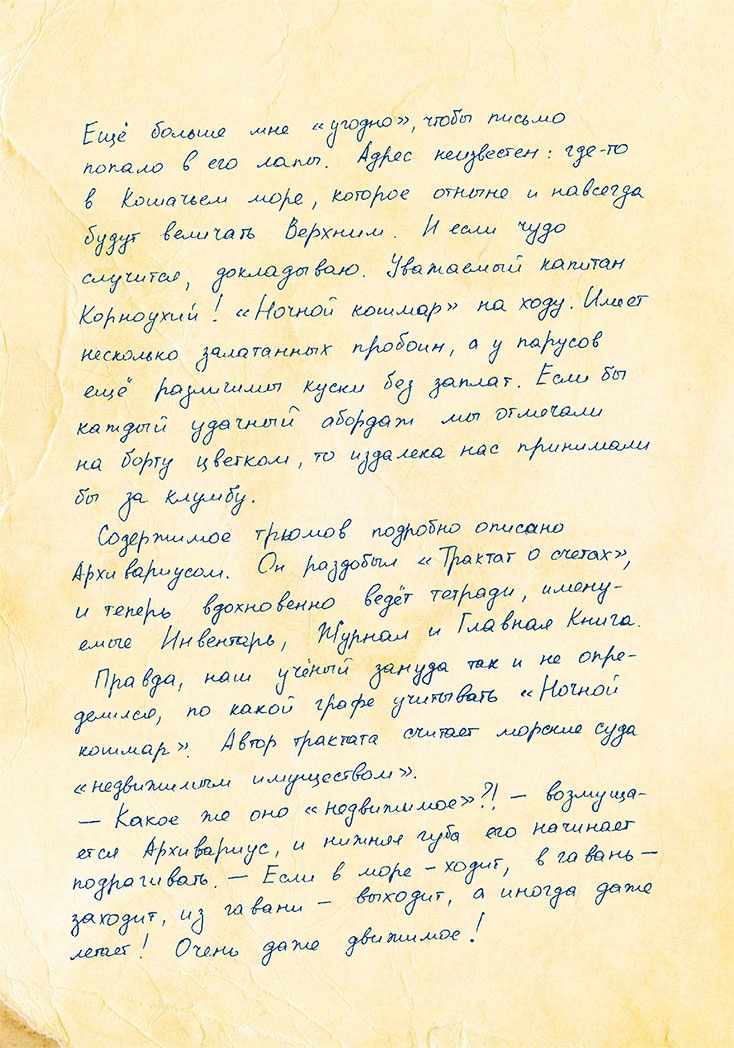 Ещё больше мне «угодно», чтобы письмо
попало в его лапы. Адрес неизвестен: где-то
в Кошачьем море, которое отныне и навсегда
будут величать Верхним. И если чудо
случится, докладываю. Уважаемый капитан
Корноухий! «Ночной кошмар» на ходу. Имеет
несколько залатанных пробоин, а у парусов
ещё различимы куски без заплат. Если бы
каждый удачный абордаж мы отмечали
на борту цветком, то издалека нас принимали
бы за клумбу.
Содержимое трюмов подробно описано
Архивариусом. Он раздобыл «Трактат о счетах»,
и теперь вдохновенно ведёт тетради, имену-
емые Инвентарь, Журнал и Главная Книга.
Правда, наш учёный зануда так и не опре-
делился, по какой графе учитывать «Ночной
кошмар». Автор трактата считает морские суда
«недвижимым имуществом».
— Какое же оно «недвижимое»?! — возмуща-
ется Архивариус, и нижняя губа его начинает
подрагивать. — Если в море - ходит, в гавань —
заходит, из гавани — выходит, а иногда даже
летает! Очень даже движимое!